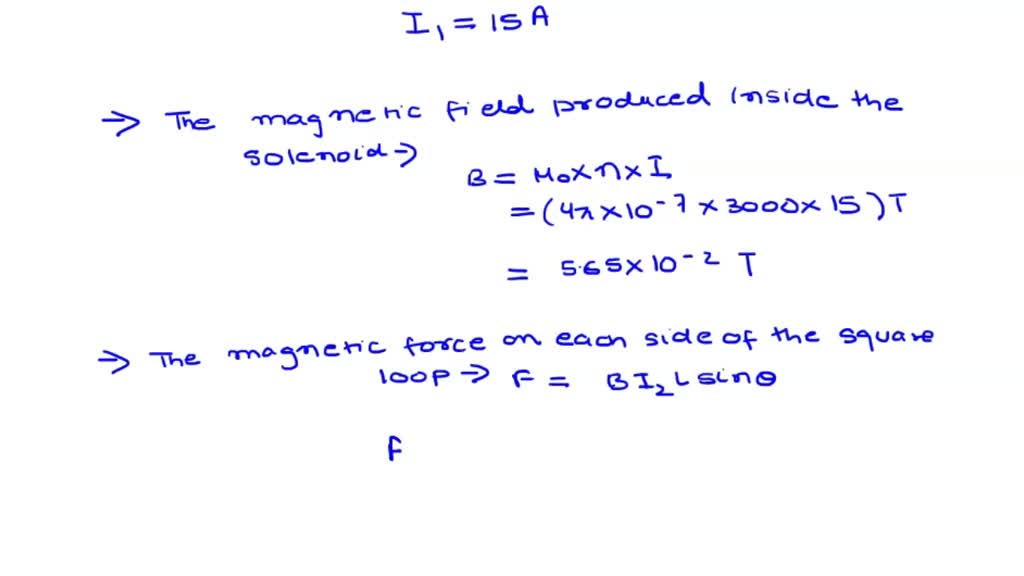 I₁ = 15 A
→ The magnetic field produced inside the
solenoid →
B = μ₀ × n × I₁
= (4π × 10⁻⁷ × 3000 × 15) T
= 5.65 × 10⁻² T
→ The magnetic force on each side of the square
loop → F = B I₂ L sinθ
F